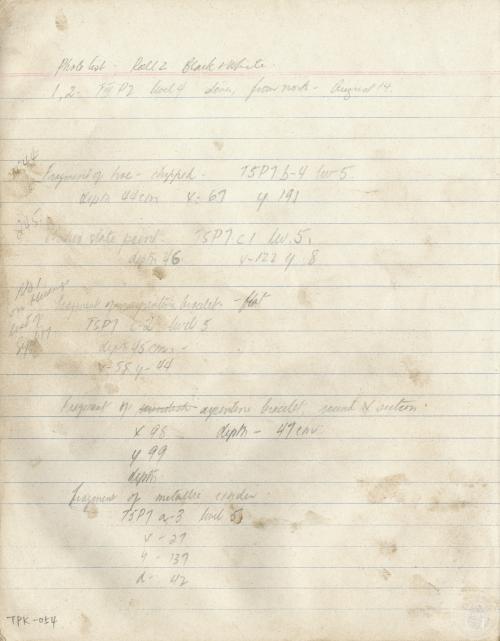 Photo list - Roll 2 Black & White.
1, 2- T P7 level 4 from north - August 14.
244
Fragment of hoe - chipped. T5P7 b-4 lev 5.
depth 44cm x- 67 y 191
245
slate point. T5P7 c1 lev. 5.
depth 46 x-122 y 8
Fragment of serpentine bracelet - flat
T5P7 c-2 level 5
depth 45 cm -
x-55 y-44
Fragment of serpentine bracelet, round x section.
x 98 depth - 47cm
y 99
depth
fragment of metallic cinder.
T5P7 a-3 level 5
x - 27
y - 137
d- 42
TPK-054